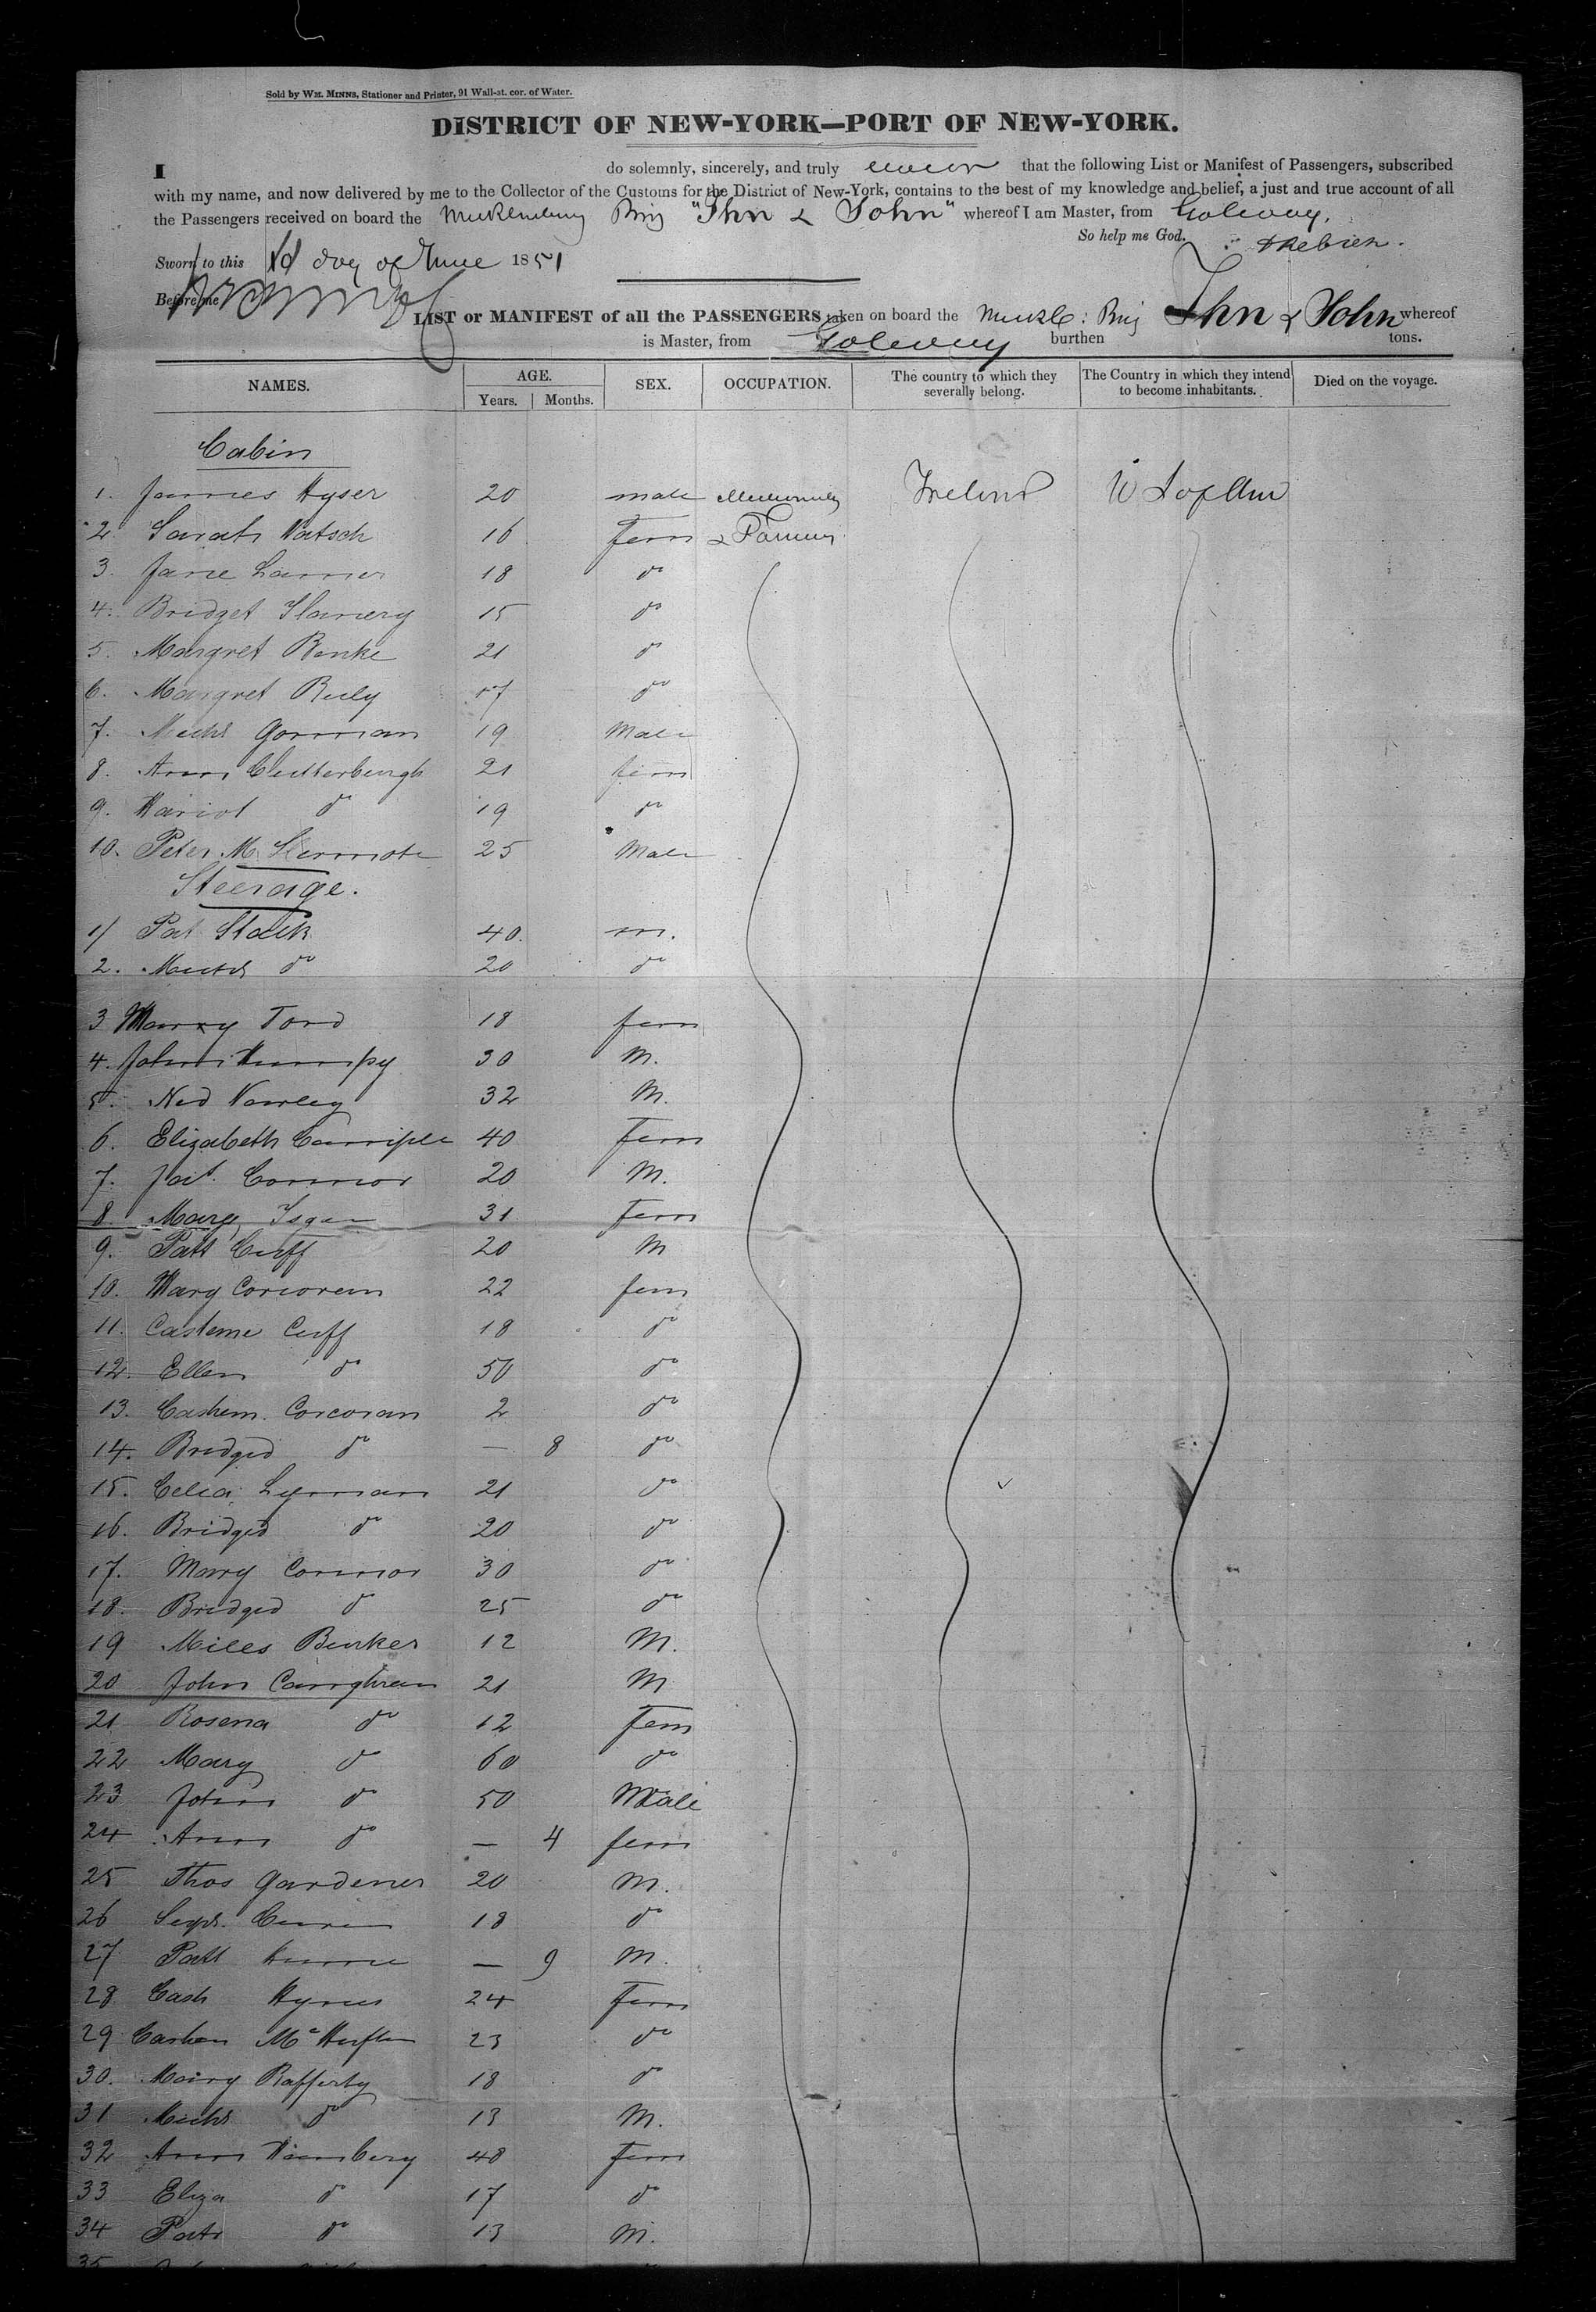 Sold by WM. MINNS, Stationer and Printer, 91 Wall-st. cor. of Water.
DISTRICT OF NEW-YORK—PORT OF NEW-YORK.
I do solemnly, sincerely, and truly that the following List or Manifest of Passengers, subscribed
with my name, and now delivered by me to the Collector of the Customs for the District of New-York, contains to the best of my knowledge and belief, a just and true account of all
the Passengers received on board the Mecklenburg Brig "Ihn & John" whereof I am Master, from Galway.
So help me God.
Sworn to this day of June 1851
Before me
LIST or MANIFEST of all the PASSENGERS taken on board the Meckl: Brig Ihn & John whereof
is Master, from Galway burthen tons.
NAMES. AGE. Years. Months. SEX. OCCUPATION. The country to which they severally belong. The Country in which they intend to become inhabitants. Died on the voyage.
Cabin
1. James Hyser 20 male Ireland U S of Am
2 Sarah Natsch 16 fem & Farmers
3. Jane 18 do
4. Bridget Flanery 15 do
5. Margret Benke 21 do
6. Margret Rely 17 do
7. Michl Gorman 19 Male
8. Ann Clutterburgh 21 fem
9. Hariot do 19 do
10. Peter 25 Male
Steerage.
1/ Pat Stack 40. m.
2. Michl do 20 do
3 Marry Ford 18 fem
4. John 30 M.
5. Ned Varley 32 M.
6. Elizabeth 40 Fem
7. Pat. Connor 20 M.
8. Mary 31 Fem
9. Patt Cuff 20 M
10. Mary Corcoren 22 fem
11. Casterne Cuff 18 do
12. Ellen do 50 do
13. Cashern. Corcoran 2 do
14. Bridged do — 8 do
15. Celia Lyman 21 do
16. Bridged do 20 do
17. Marry Connor 30 do
18. Bridged do 25 do
19 Miles Burker 12 M.
20 John Caughran 21 M
21 Rosena do 12 Fem
22 Mary do 60 do
23 John do 50 Male
24 Ann do — 4 fem
25 Thos Gardener 20 M.
26 18 do
27 Patt — 9 M.
28 Cash Hynes 24 Fem
29 Cashen 23 do
30. Mairy Rafferty 18 do
31 Michl do 13 M.
32 Ann 48 Fem
33 Eliza do 17 do
34 Patr do 13 M.
35